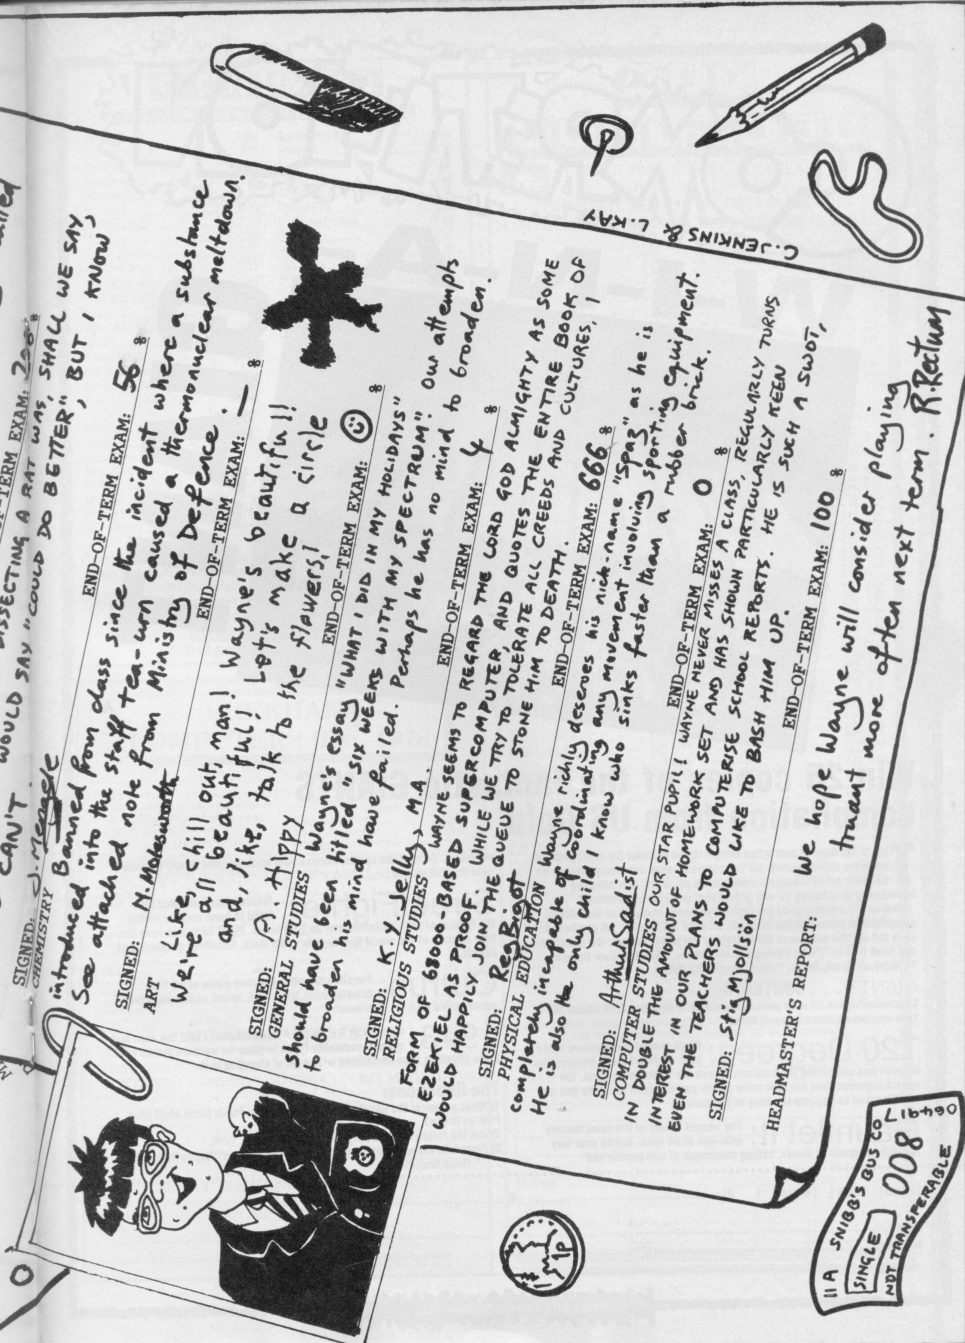 ailed
-TERM EXAM:
DISSECTING A RAT WAS, SHALL WE SAY,
CAN'T WOULD SAY "COULD DO BETTER", BUT I KNOW
SIGNED: J. Mengele
CHEMISTRY END-OF-TERM EXAM: 56 %
Banned from class since the incident where a substance
introduced into the staff tea-urn caused a thermonuclear meltdown.
See attached note from Ministry of Defence.
SIGNED: N. Molesworth
ART END-OF-TERM EXAM: — %
Like, chill out, man! Wayne's beautiful!
We're all beautiful! Let's make a circle
and, like, talk to the flowers!
SIGNED: A Hippy
GENERAL STUDIES END-OF-TERM EXAM: ☺ %
Wayne's essay "WHAT I DID IN MY HOLIDAYS"
should have been titled "SIX WEEKS WITH MY SPECTRUM". Our attempts
to broaden his mind have failed. Perhaps he has no mind to broaden.
SIGNED: Kynelly M.A.
RELIGIOUS STUDIES END-OF-TERM EXAM: 4 %
WAYNE SEEMS TO REGARD THE LORD GOD ALMIGHTY AS SOME
FORM OF 68000 BASED SUPERCOMPUTER, AND QUOTES THE ENTIRE BOOK OF
EZEKIEL AS PROOF. WHILE WE TRY TO TOLERATE ALL CREEDS AND CULTURES, I
WOULD HAPPILY JOIN THE QUEUE TO STONE HIM TO DEATH.
SIGNED: Reg Bigot
PHYSICAL EDUCATION END-OF-TERM EXAM: 666 %
Wayne richly deserves his nick-name "Spaz" as he is
completely incapable of coordinating any movement involving sporting equipment.
He is also the only child I know who sinks faster than a rubber brick.
SIGNED: Arthur Sadist
COMPUTER STUDIES END-OF-TERM EXAM: 0 %
OUR STAR PUPIL! WAYNE NEVER MISSES A CLASS, REGULARLY TURNS
IN DOUBLE THE AMOUNT OF HOMEWORK SET AND HAS SHOWN PARTICULARLY KEEN
INTEREST IN OUR PLANS TO COMPUTERISE SCHOOL REPORTS. HE IS SUCH A SWOT,
EVEN THE TEACHERS WOULD LIKE TO BASH HIM UP.
SIGNED: Stig Mjollson
END-OF-TERM EXAM: 100 %
HEADMASTER'S REPORT: We hope Wayne will consider playing
truant more often next term. R. Rectum
C. JENKINS & L. KAY
1P
11A SNIBB'S BUS CO. 064917
SINGLE 008
NOT TRANSFERABLE